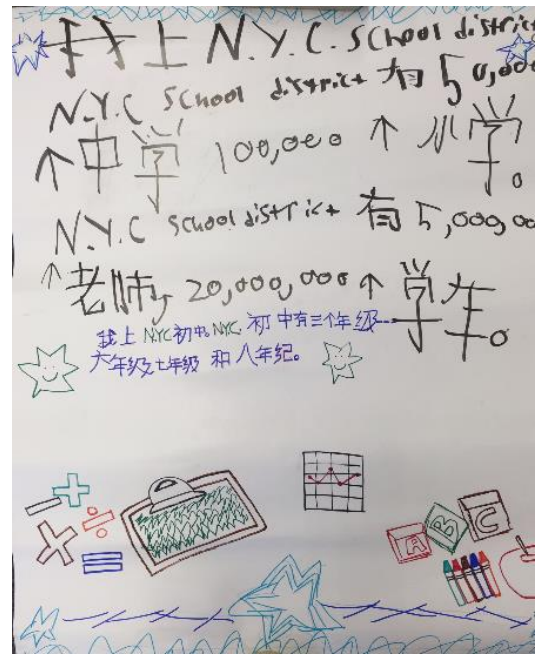 我上 N.Y.C. SCHool district
N.Y.C SCHool district 有 50,000
个中学 100,000 个 小学。
N.Y.C School district 有 5,000,00
个老师, 20,000,000 个 学生。
我上 NYC 初中。NYC. 初中有三个年级
六年级,七年级 和 八年纪。
A B C